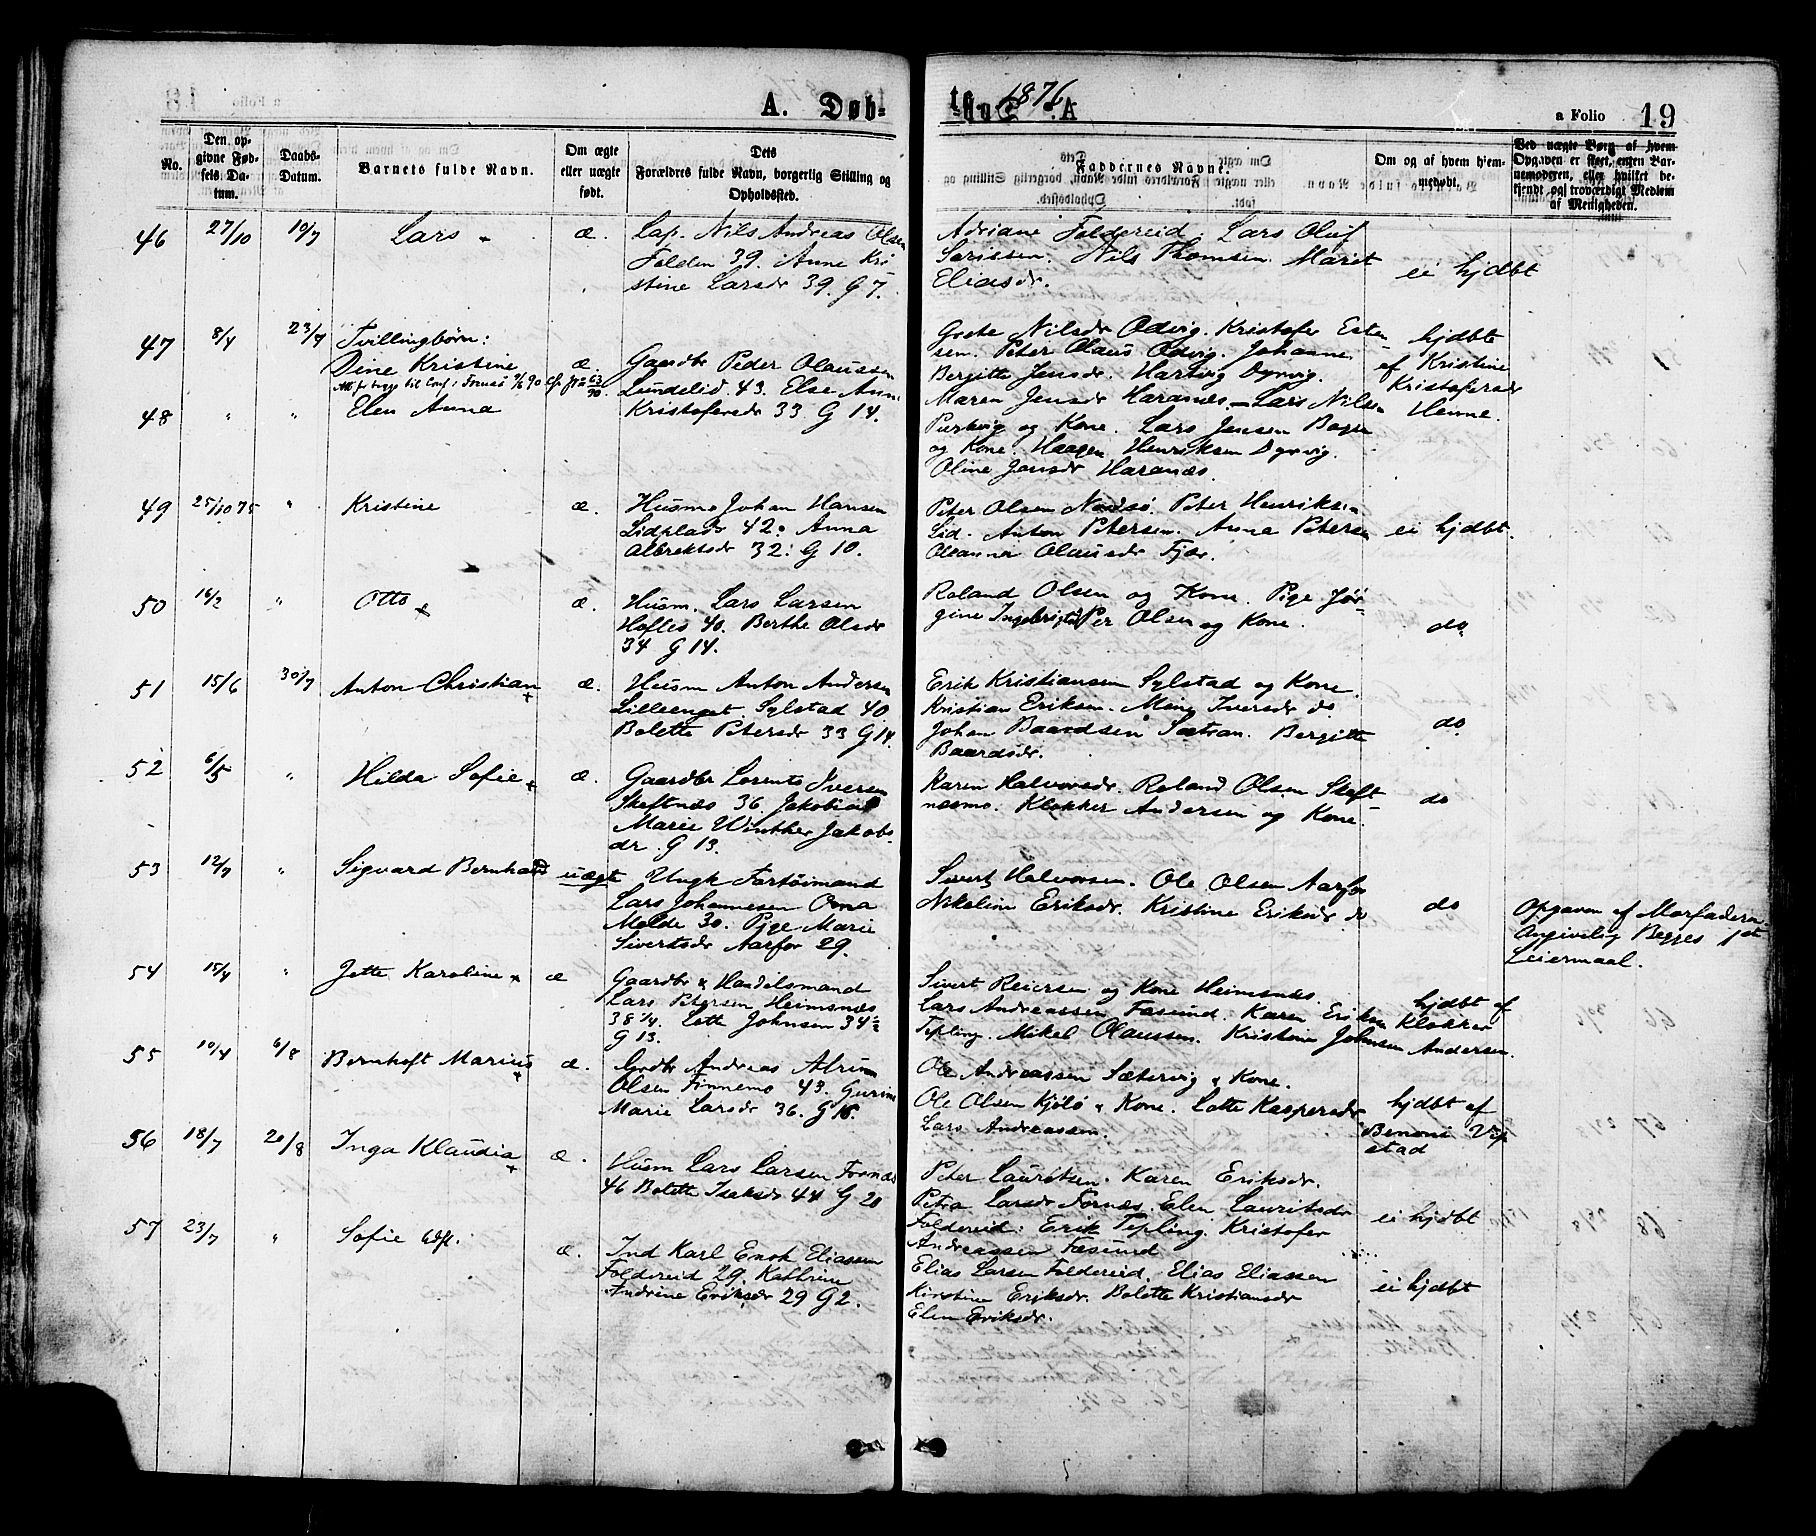 A. Døb-
te. 1876. A
a Folio 19
No.
Den op-
givne Fød-
sels Da-
tum.
Daabs-
Datum.
Barnets fulde Navn.
Om ægte
eller uægte
født.
Dets
Forældres fulde Navn, borgerlig Stilling og
Opholdssted.
Faddernes Navne.
Om og af hvem hjem-
medøbt.
Ved uægte Børn af hvem
Opgaven er skeet, enten Bar-
nemoderen, eller hvilket be-
kjendt og troværdigt Medlem
af Menigheden.
46 27/10 10/7 Lars æ. Lap. Nils Andreas Olsen
Folden 39. Anne Kri
stine Larsdr 39. G 7.
Adriane Foldereid. Lars Oluf
Sørissen. Nils Thomsen. Maret
Eliasdr.
ei hjdbt
47 8/4 23/7 Tvillingbørn:
Dine Kristine æ.
48 " " Elen Anna
Gaardbr Peder Olaussen
Lundelid 43. Else Anna
Kristofersdr 33 G 14.
Grete Nilsdr Odvig. Kristofer Esten
sen. Peter Olaus Odvig. Johanne
Bergitte Jensdr. Hartvig Dyrvig.
Maren Jensdr Haranæs. – Lars Nilsen
og Kone. Lars Jensen
og Kone. Haagen Henriksen Dyrvig.
Oline Jensdr Haranæs.
hjdbte
af Kristine
Kristofersdr
Hemne.
49 25/10 75 " Kristine æ. Husm. Johan Hansen
Lidplads 42. Anna
Albrektsdr 32. G 10.
Peter Olsen Peter Henriksen
Lid. Anton Petersen. Anna Petersen
Oleanna Olausdr Fjær.
ei hjdbt.
50 16/2 " Otto æ. Husm. Lars Larsen
Hofles 40. Berthe Olsdr
34 G 14.
Roland Olsen og Kone. Pige Jør-
gine Ingebrigtsdr Per Olsen og Kone.
do
51 15/6 30/7 Anton Christian æ. Husm Anton Andersen
Lilleenget Sylstad 40
Bolette Petersdr 33 G 14.
Erik Kristiansen Sylstad og Kone.
Kristian Eriksen. Mina Iversdr do
Johan Baardsen Sætran. Bergitte
Baardsdr.
do
52 6/5 " Hilda Sofie æ. Gaardbr Lorents Iversen
Skeftnæs 36 Jakobine
Marie Winther Jakobs-
dr. G 13.
Karen Halvorsdr. Roland Olsen Skeft-
næsmo. Klokker Andersen og Kone.
do
53 12/7 " Sigvard Bernhard uægte Ungk Fartøimand
Lars Johannesen Orna
Molde 30. Pige Marie
Sivertsdr Aarfor 29.
Sivert Halvorsen. Ole Olsen Aarfor
Nikoline Eriksdr. Kristine Eriksdr do
do
Opgaven af Morfaderen
Angivelig Begges 1st
Leiermaal.
54 15/4 " Jette Karoline æ Gaardbr & Handelsmand
Lars Petersen Heimsnæs
38 1/4. Lotte Johnsen 34
G 13.
Sivert Reiersen og Kone Heimsnæs.
Lars Andreassen Fæsund. Karen Eriksen
Tepling. Mikel Olaussen. Kristine Johnsen
hjdbt af
Klokker
Andersen.
55 10/4 6/8 Bernhoft Marius æ. Grdbr Andreas Abrum
Olsen Finnemo 43. Gurine
Marie Larsdr 36. G 18.
Ole Andreassen Sætervig & Kone.
Ole Olsen Kjølsø & Kone. Lotte Kaspersdr
Lars Andreassen.
hjdbt af
Benoni Vip
stad
56 18/7 20/8 Inga Klaudia æ. Husm Lars Larsen Fornæs
46 Bolette Isaksdr 44 G 20
Peter Lauritsen. Karen Eriksdr.
Petra Larsdr Fornæs. Elen Lauritsdr
Foldereid. Erik Tepling. Kristofer
Andreassen Fæsund
ei hjdbt
57 23/7 " Sofie æ. Ind Karl Enok Eliassen
Foldereid 29. Kathrine
Andrine Eriksdr 29 G 2.
Elias Larsen Foldereid. Elias Eliassen
Kirstine Eriksdr. Bolette Kristiansdr
Elen Eriksdr.
ei hjdbt